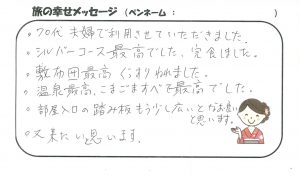 旅の幸せメッセージ （ペンネーム： ）
・70代 夫婦で利用させていただきました。
・シルバーコース最高でした、完食しました。
・敷布団最高 ぐっすりねれました。
・温泉最高、こまごますべて最高でした。
・部屋入口の踏み板もう少し広いとなお良いと思います。
・又来たいと思います。